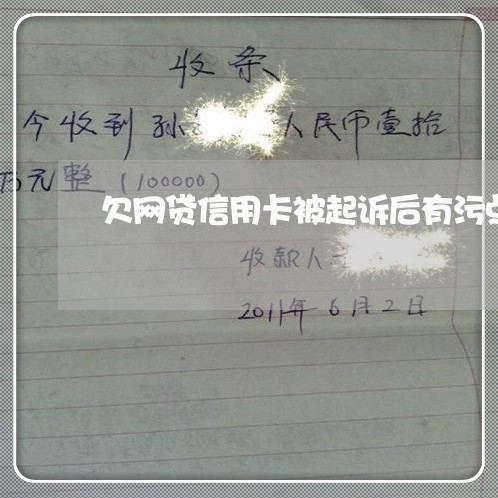 收条
今收到孙 人民币壹拾
万元整(100000)
欠网贷信用卡被起诉后有污点
收款人
2011年6月2日